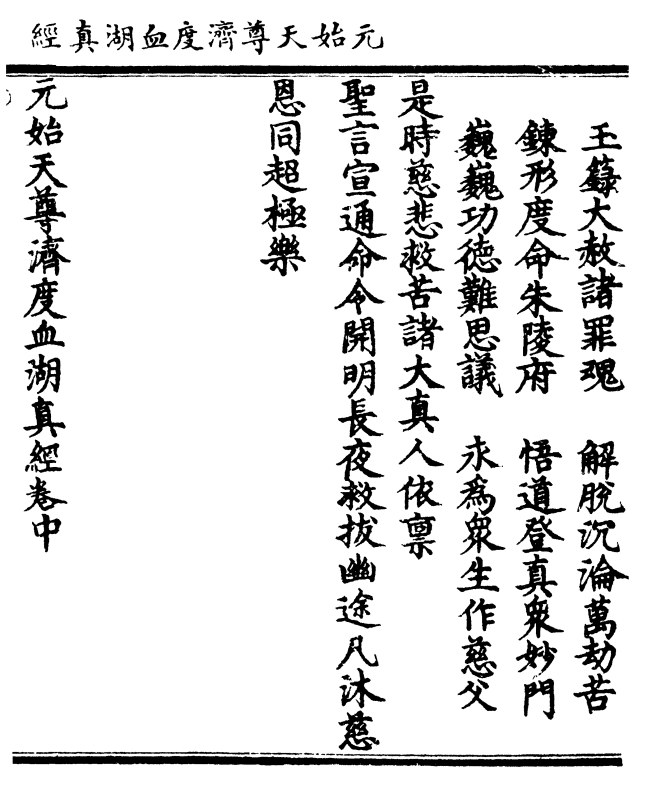 元始天尊濟度血湖真經
玉籙大赦諸罪魂　解脫沉淪萬劫苦
鍊形度命朱陵府　悟道登真衆妙門
巍巍功德難思議　永爲衆生作慈父
是時慈悲救苦諸大真人依禀
聖言宣通命令開明長夜救拔幽途凡沐慈
恩同超極樂
元始天尊濟度血湖真經卷中